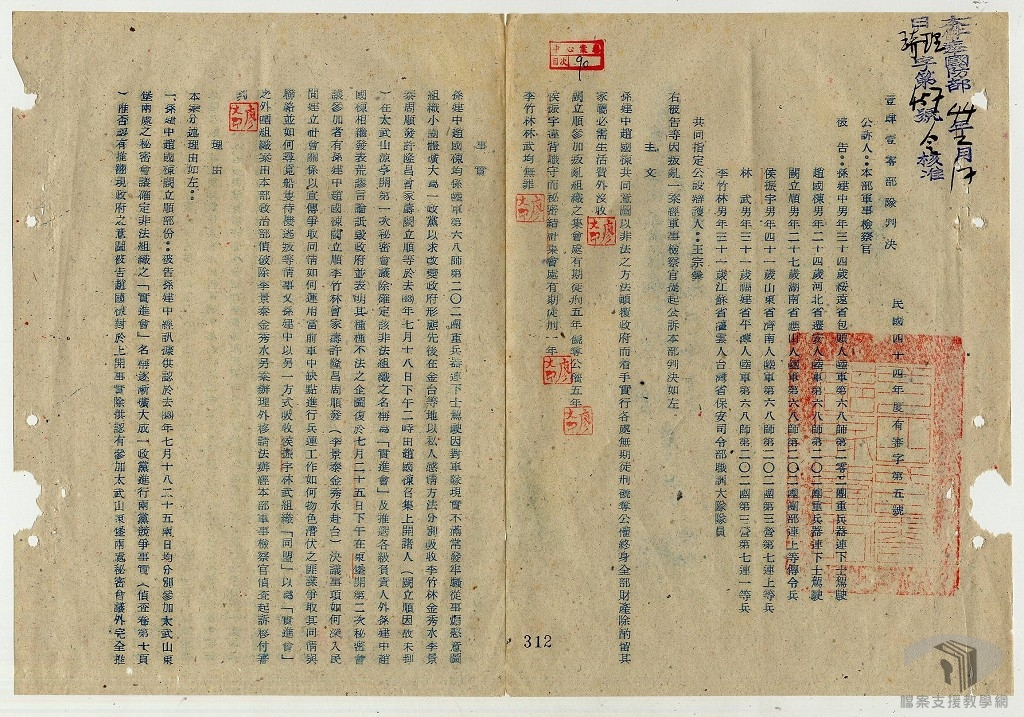 奉國防部44年5月17
日理琦字第457號令核准
壹肆壹零部隊判決
民國四十四年度有審字第五號
公訴人：本部軍事檢察官
被告：孫建中男年三十四歲綏遠省包頭人陸軍第六八師第二零二團重兵器連下士駕駛
趙國棟男年二十四歲河北省遷安人陸軍第六八師第二0二團重兵器連下士駕駛
闕立順男年二十七歲湖南省應山人陸軍第六八師第二0二團團部連上等傳令兵
侯振宇男年四十一歲山東省濟南人陸軍第六八師第二0二團第三營第七連上等兵
林 武男年三十一歲福建省平潭人陸軍第六八師第二0二團第三營第七連一等兵
李竹林男年三十一歲江蘇省灌雲人台灣省保安司令部職訓大隊隊員
共同指定公設辯護人：王宗
右被告等因叛亂一案經軍事檢察官提起公訴本部判決如左
主 文
孫建中趙國棟共同意圖以非法之方法顛覆政府而着手實行各處無期徒刑褫奪公權終身全部財產除酌留其
家屬必需生活費外沒收
闕立順參加叛亂組織之集會處有期徒刑五年褫奪公權五年
侯振宇違背職守而秘密結社集會處有期徒刑一年
李竹林林武均無罪
事 實
孫建中趙國棟均係陸軍第六八師第二0二團重兵器連下士駕駛因對軍隊現實不滿常發牢騷從事煽惑意圖
組織小團體擴大為一政黨以求改變政府形態先後在金台等地以私人感情方法分別吸收李竹林金秀水李景
泰周順發許隆昌曾家壽闕立順等於去年七月十八日下午二時由趙國棟召集上開諸人（闕立順因故未到
）在太武山涼亭開第一次秘密會議除確定該非法組織之名稱為「實進會」及推選各級負責人外孫建中趙
國棟相繼發表荒謬言論詆毀政府並表明其種種不法之企圖復於七月二十五日下午在東堡開第二次秘密會
議參加者有孫建中趙國棟闕立順李竹林曾家壽許隆昌周順發（李景泰金秀水赴台）決議事項如何深入民
間建立社會關係以宣傳爭取同情如何運用當前軍中缺點進行兵運工作如何物色潛伏之匪諜爭取其同情與
聯絡並如何尋覓船隻待機逃叛等情事又孫建中以另一方式吸收侯振宇林武組織「同盟」以為「實進會」
之外圍組織案由本部政治部偵破除李景泰金秀水另案辦理外移請法辦經本部軍事檢察官偵查起訴移付審
判
理 由
本案分述理由如左：
一、孫建中趙國棟闕立順部份：被告孫建中經訊據供認於去年七月十八二十五兩日均分別參加太武山東
堡兩處之秘密會議確定非法組織之「實進會」名稱逐漸擴大成一政黨進行兩黨競爭事實（偵查卷第十頁
）惟否認有推翻現政府之意圖被告趙國棟對於上開事實除供認有參加太武山東堡兩處秘密會議外完全推
中心彙
目次 90
312
檔案支援教學網